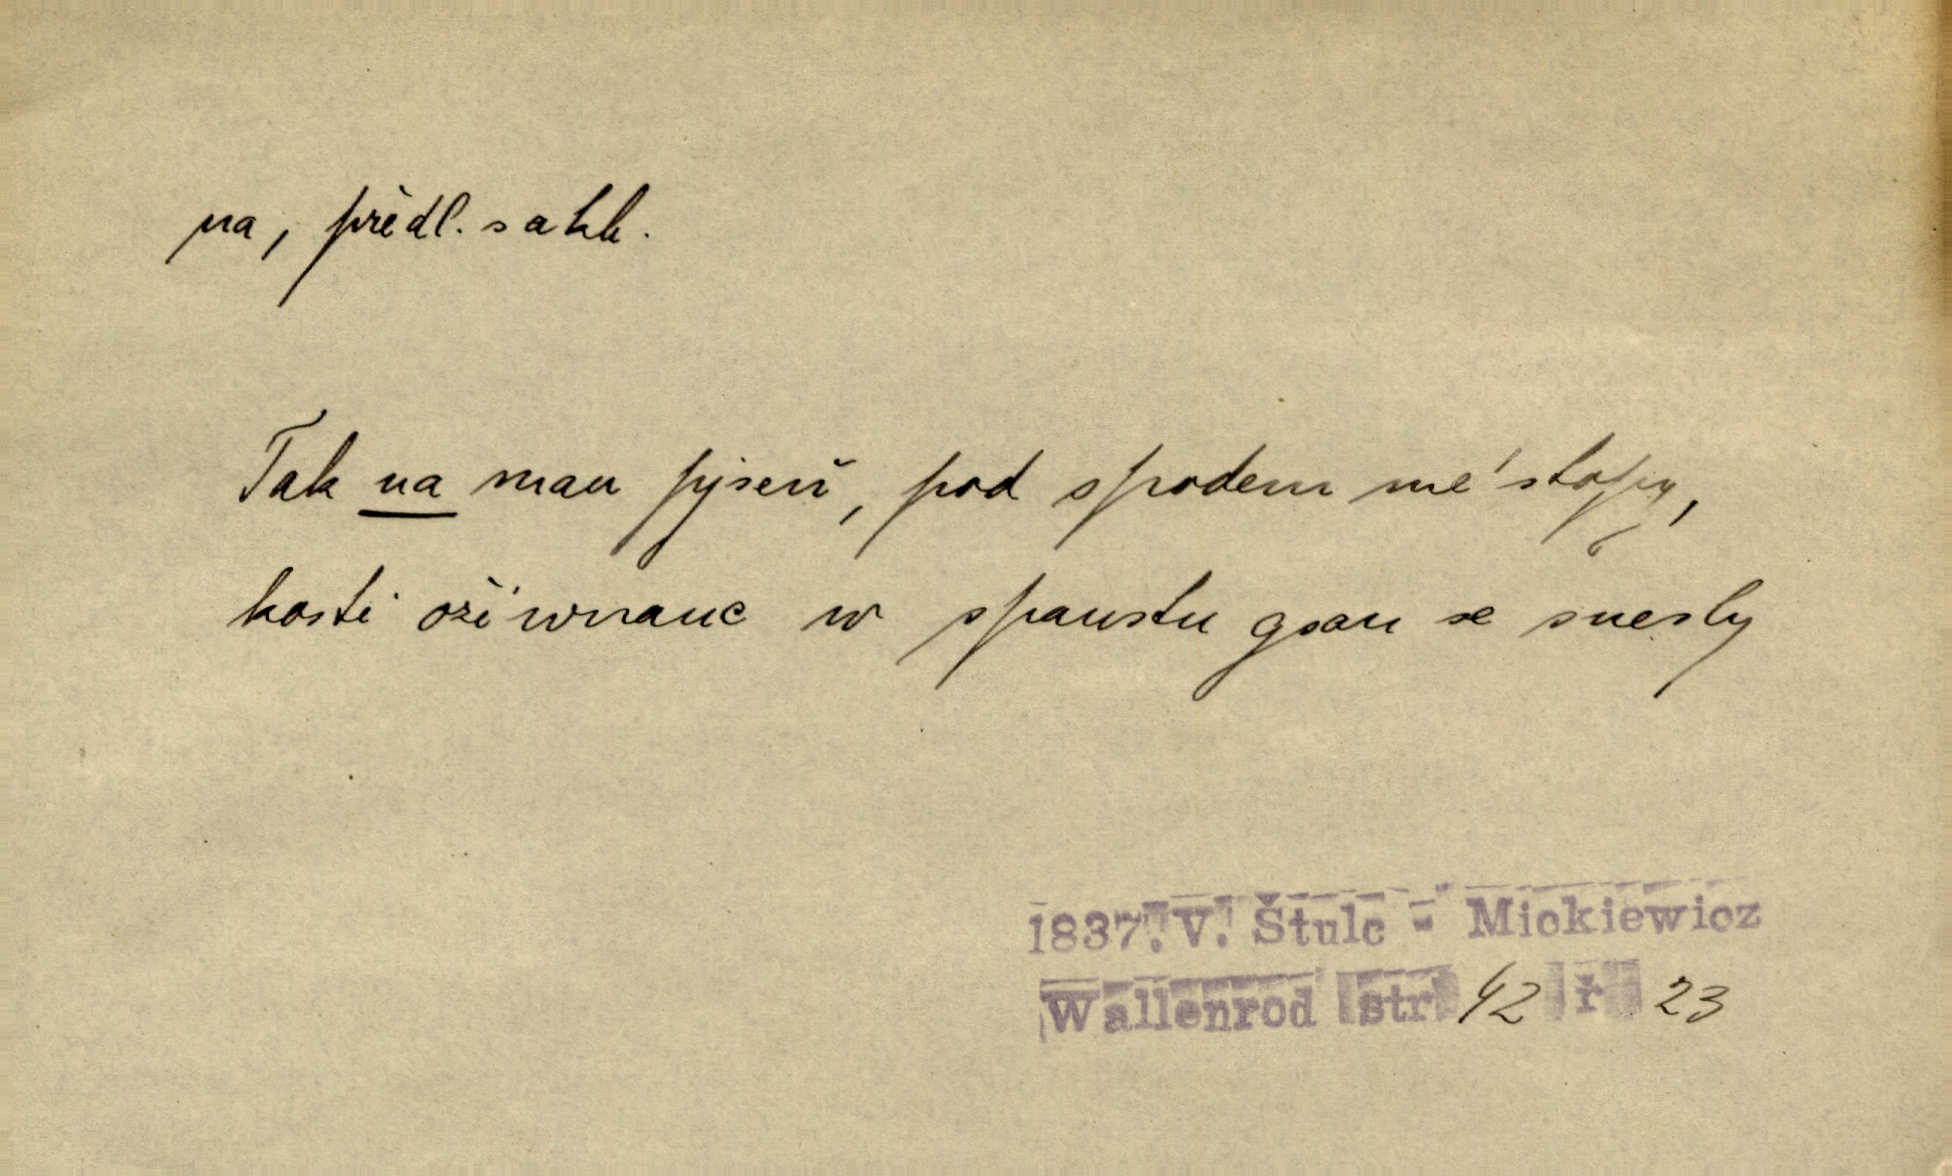 na, předl. s akk.
Tak na mau pjseň, pod spodem mé stopy,
kosti oživnauc w spaustu gsau se snesly
1837. V. Štulc - Mickiewicz
Wallenrod str 42 ř 23